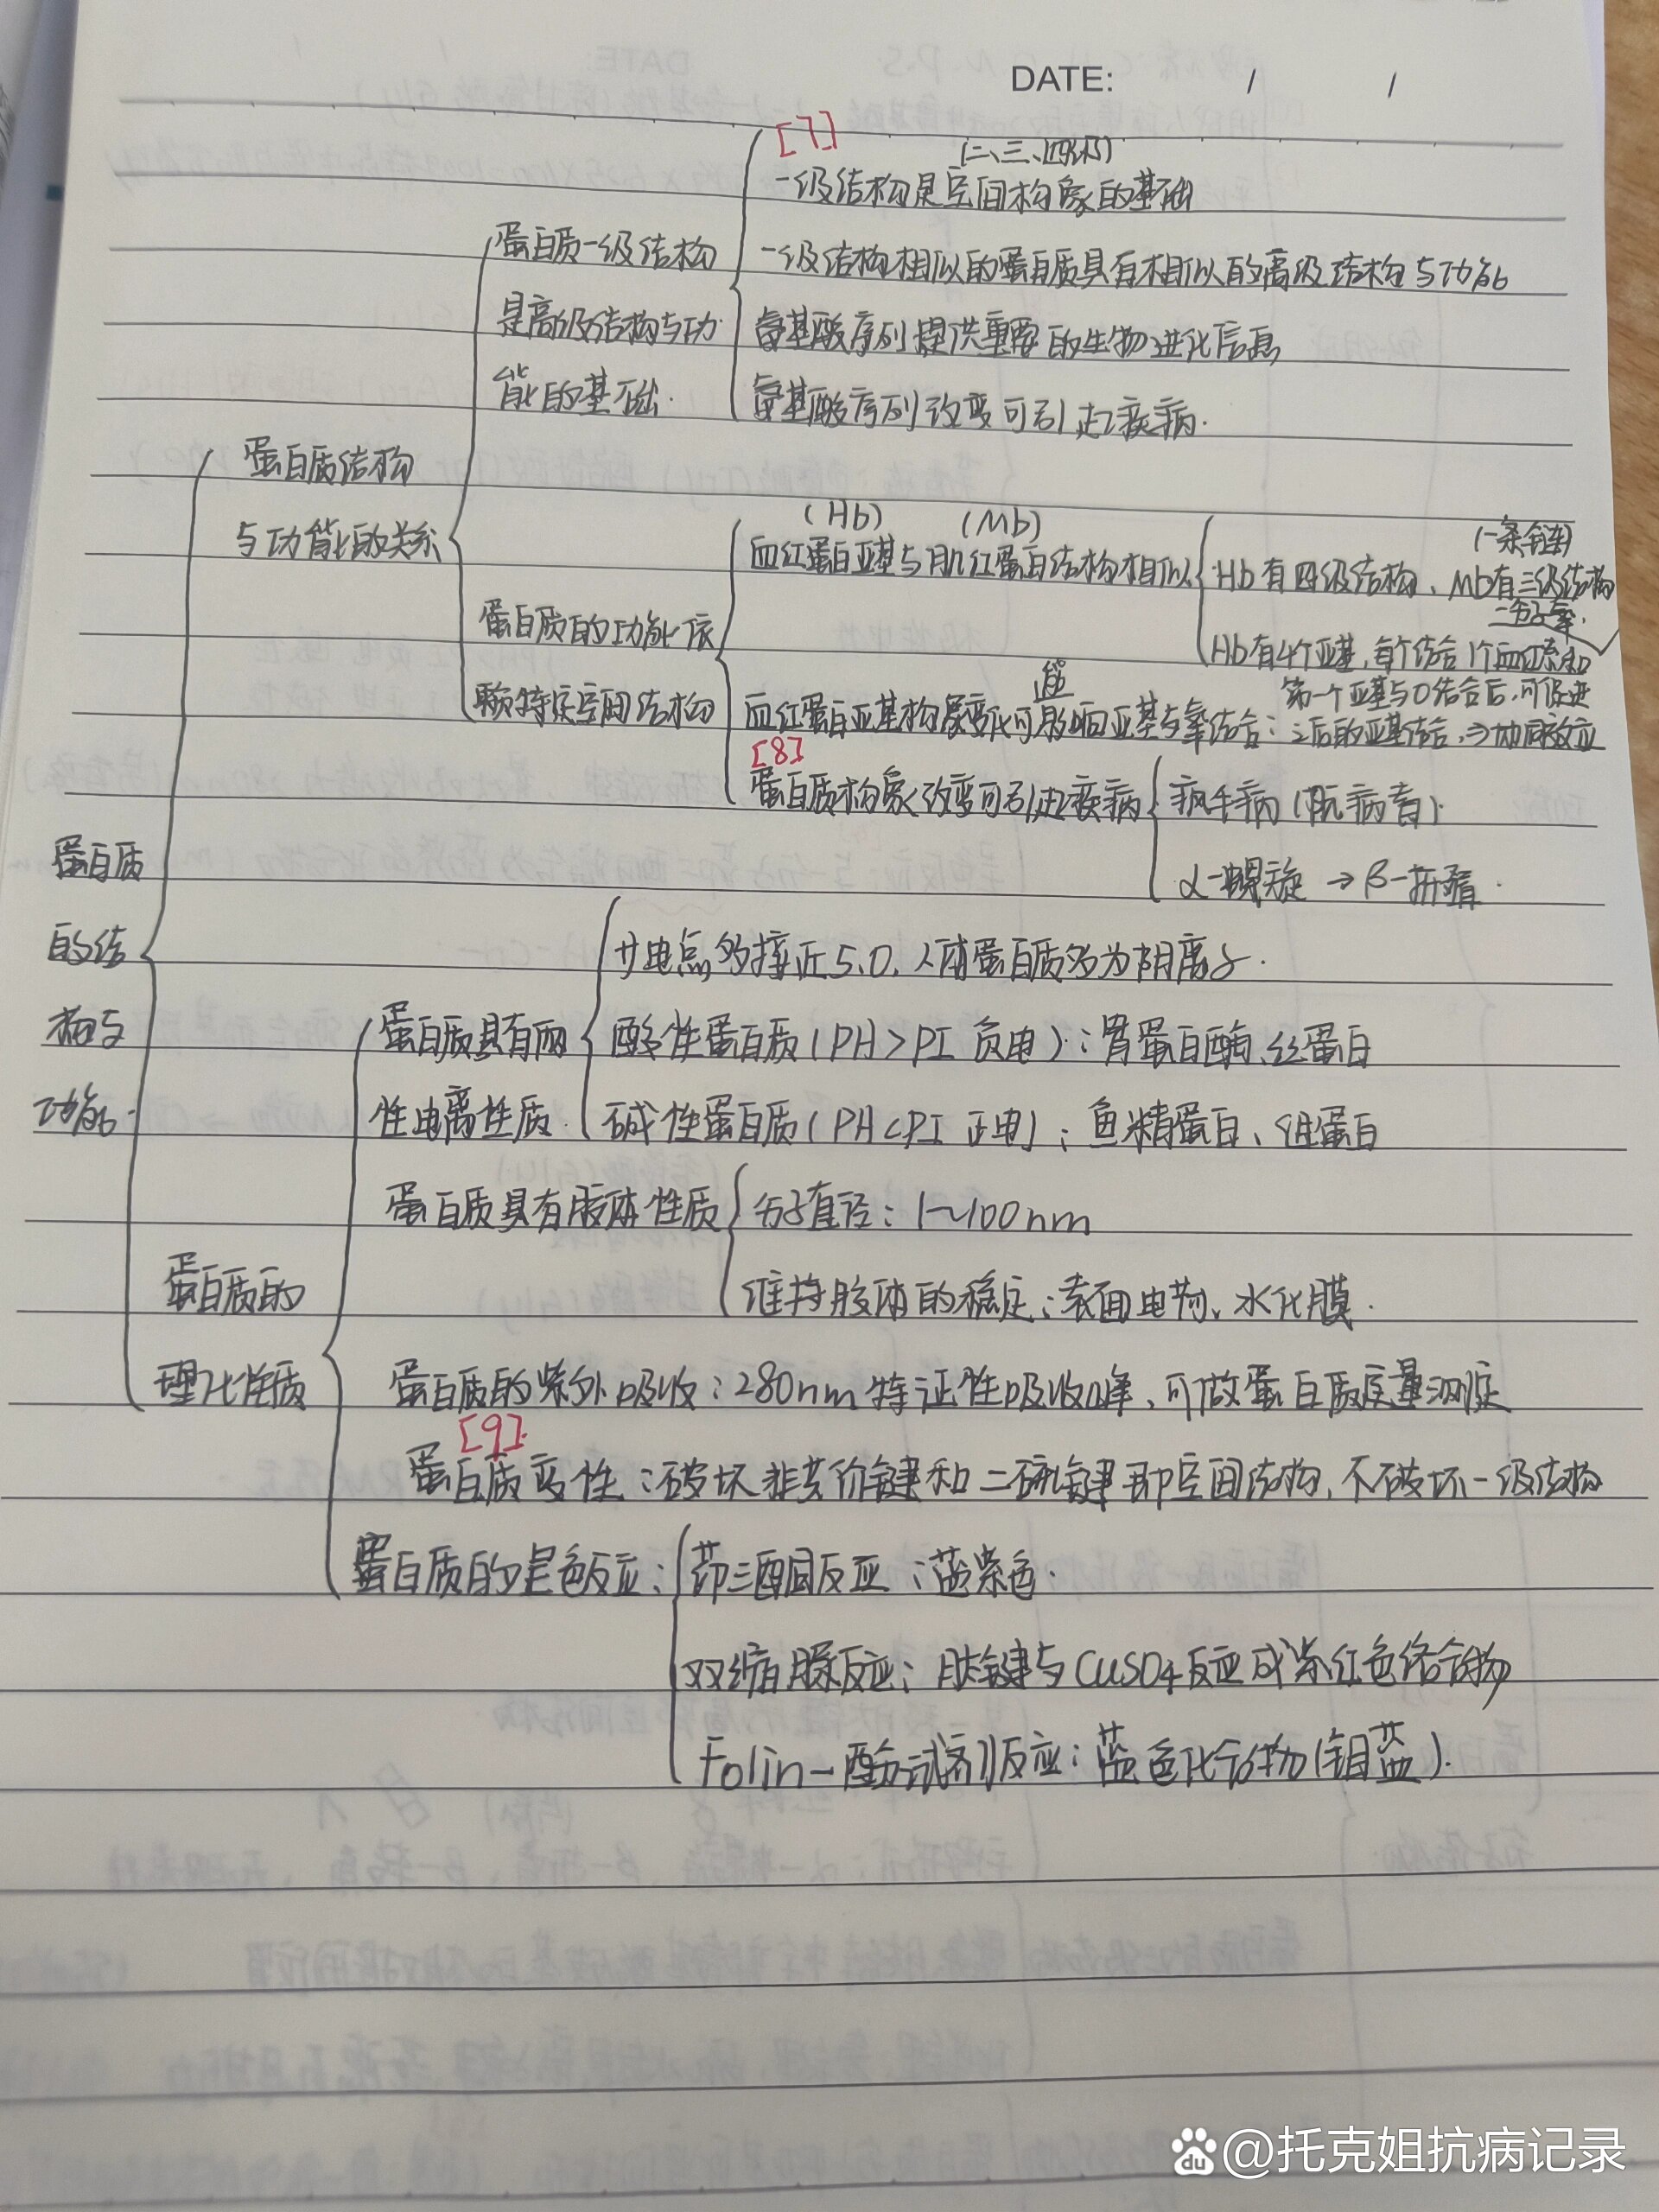 DATE: / /
[7]
(二、三、四级)
一级结构是空间构象的基础
蛋白质一级结构
一级结构相似的蛋白质具有相似的高级结构与功能
是高级结构与功
氨基酸序列提供重要的生物进化信息
能的基础.
氨基酸序列改变可引起疾病.
蛋白质结构
与功能的关系
(Hb) (Mb)
血红蛋白亚基与肌红蛋白结构相似
(一条链)
Hb有四级结构、Mb有三级结构
蛋白质的功能依
赖特定空间结构
Hb有4个亚基,每个结合1个血红素和
一分子氧.
血红蛋白亚基构象变化可影响亚基与氧结合:
第一个亚基与O结合后,可促进
之后的亚基结合,⇒协同效应
[8]
蛋白质构象改变可引起疾病
疯牛病(朊病毒)
α-螺旋→β-折叠.
蛋白质
的结
构与
功能.
等电点多接近5.0,人体蛋白质多为阴离子.
蛋白质具有两
性电离性质.
酸性蛋白质(PH>PI 负电):胃蛋白酶、丝蛋白
碱性蛋白质(PH<PI 正电):鱼精蛋白、组蛋白
蛋白质具有胶体性质
分子直径:1~100nm
维持胶体的稳定:表面电荷、水化膜.
蛋白质的
理化性质
蛋白质的紫外吸收:280nm特证性吸收峰,可做蛋白质定量测定
[9].
蛋白质变性:破坏非共价键和二硫键即空间结构,不破坏一级结构
蛋白质的呈色反应:
茚三酮反应:蓝紫色.
双缩脲反应:肽键与CuSO4反应成紫红色络合物
Folin-酚试剂反应:蓝色化合物(钼蓝).
du @托克姐抗病记录